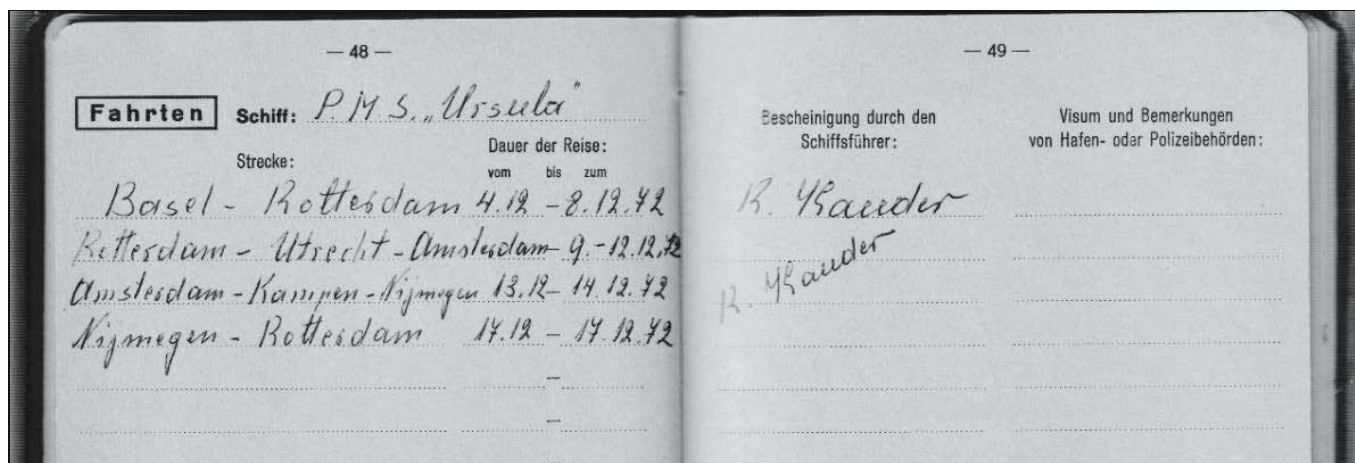 — 48 —
Fahrten Schiff: P.M.S. „Ursula"
Strecke: Dauer der Reise:
vom bis zum
Basel - Rotterdam 4.12 - 8.12.72
Rotterdam - Utrecht - Amsterdam - 9. - 12.12.72
Amsterdam - Kampen - Nijmegen 13.12 - 14.12.72
Nijmegen - Rotterdam 17.12 - 17.12.72
—
—
— 49 —
Bescheinigung durch den
Schiffsführer:
Visum und Bemerkungen
von Hafen- oder Polizeibehörden:
R. Kauder
R. Kauder